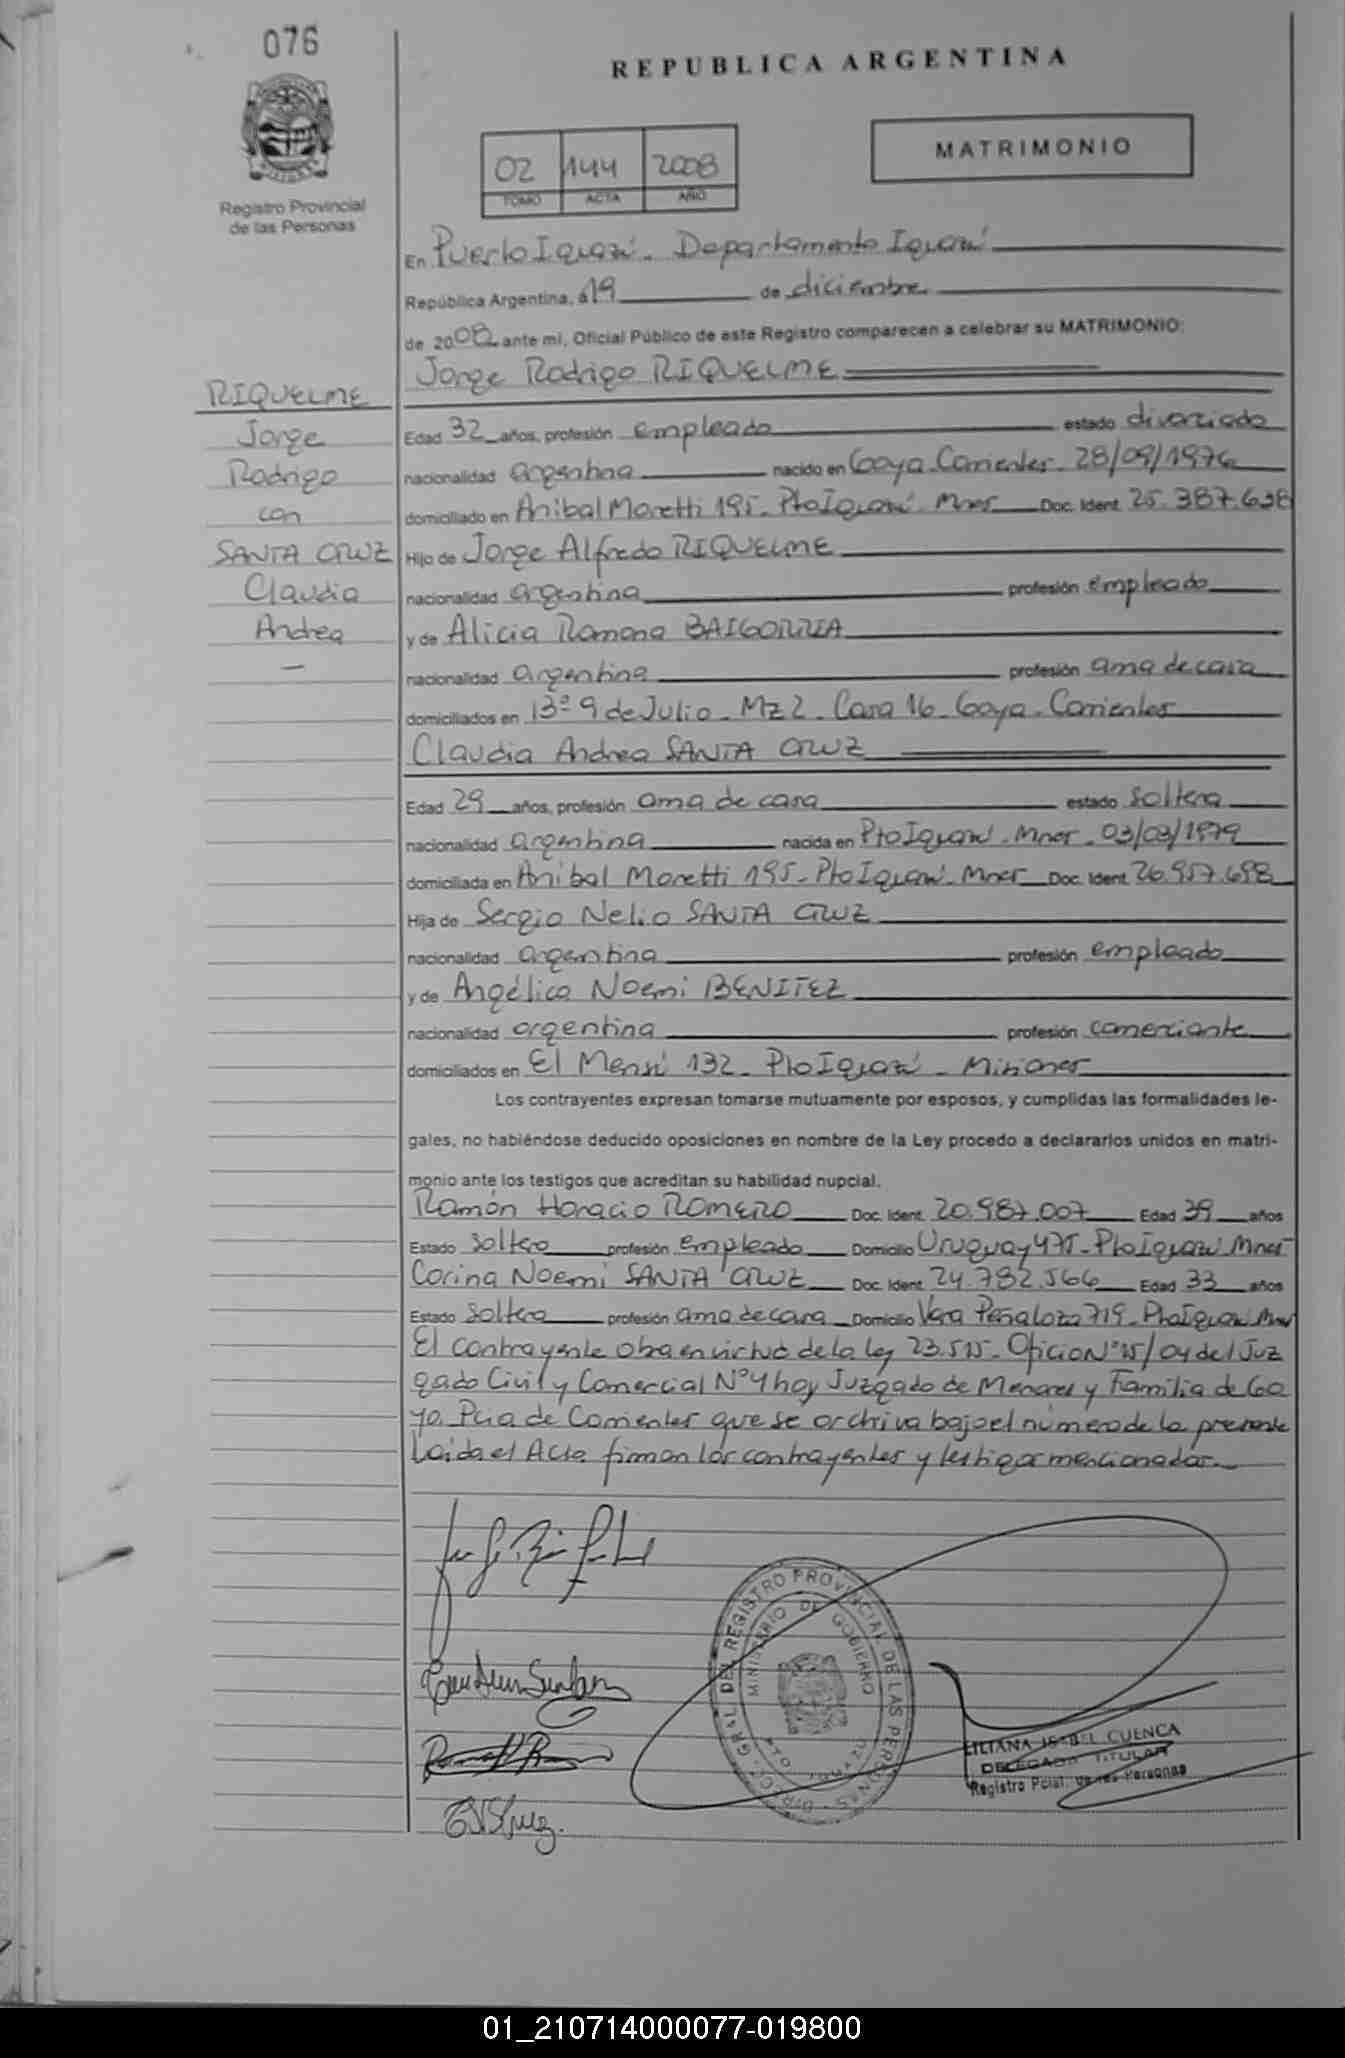 076
REPUBLICA ARGENTINA
02 144 2008
TOMO ACTA AÑO
MATRIMONIO
Registro Provincial
de las Personas
En Puerto Iguazú - Departamento Iguazú
República Argentina, a 19 de diciembre
de 2008 ante mi, Oficial Público de este Registro comparecen a celebrar su MATRIMONIO:
Jorge Rodrigo RIQUELME
RIQUELME
Jorge
Rodrigo
con
SANTA CRUZ
Claudia
Andrea
—
Edad 32 años, profesión empleado estado divorciado
nacionalidad argentina nacido en Goya Corrientes 28/09/1976
domiciliado en Anibal Moretti 195 - Pto Iguazú - Mnes Doc. Ident. 25.387.638
Hijo de Jorge Alfredo RIQUELME
nacionalidad argentina profesión empleado
y de Alicia Ramona BAIGORRIA
nacionalidad argentina profesión ama de casa
domiciliados en 13º 9 de Julio - Mz 2 - Casa 16 - Goya - Corrientes
Claudia Andrea SANTA CRUZ
Edad 29 años, profesión ama de casa estado soltera
nacionalidad argentina nacida en Pto Iguazú - Mnes - 03/03/1979
domiciliada en Anibal Moretti 195 - Pto Iguazú - Mnes Doc. Ident. 26.957.698
Hija de Sergio Nelio SANTA CRUZ
nacionalidad argentina profesión empleado
y de Angélica Noemi BENITEZ
nacionalidad argentina profesión comerciante
domiciliados en El Mensú 132 - Pto Iguazú - Misiones
Los contrayentes expresan tomarse mutuamente por esposos, y cumplidas las formalidades le-
gales, no habiéndose deducido oposiciones en nombre de la Ley procedo a declararlos unidos en matri-
monio ante los testigos que acreditan su habilidad nupcial.
Ramón Horacio ROMERO Doc. Ident. 20.987.007 Edad 39 años
Estado soltero profesión empleado Domicilio Uruguay 475 - Pto Iguazú Mnes
Corina Noemi SANTA CRUZ Doc. Ident. 24.782.566 Edad 33 años
Estado soltera profesión ama de casa Domicilio Vera Peñaloza 719 - Pto Iguazú Mnes
El contrayente obra en virtud de la ley 23.515 - Oficio Nº 15/04 del Juz
gado Civil y Comercial Nº 4 hoy Juzgado de Menores y Familia de Go
ya Pcia de Corrientes que se archiva bajo el número de la presente
Leida el Acta firman los contrayentes y testigos mencionados.
DIRECC. GRAL. DEL REGISTRO PROVINCIAL DE LAS PERSONAS
MINISTERIO DE GOBIERNO
PTO. IGUAZU
LILIANA ISABEL CUENCA
DELEGADA TITULAR
Registro Pcial. de las Personas
01_210714000077-019800